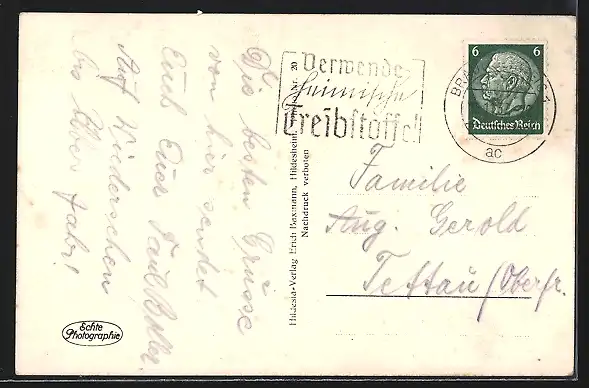 Die besten Grüsse
von hier sendet
Euch Euer
Auf Wiedersehen
bis übers Jahr!
Echte
Photographie
Hildesia-Verlag Ernst Baxmann, Hildesheim
20
Nachdruck verboten
Verwende
heimische
Treibstoffe!
6 6
Deutsches Reich
BRA
ac
Familie
Aug. Gerold
Tettau/Oberfr.